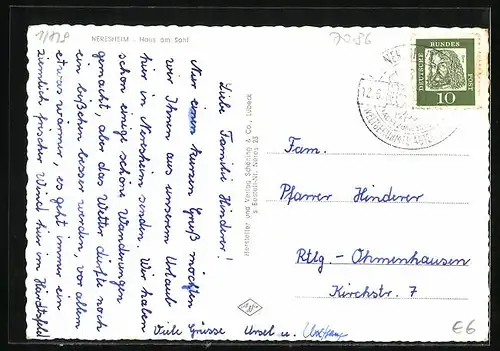 1/119
NERESHEIM - Haus am Sohl
7086
DEUTSCHE BUNDES POST
10
Liebe Familie Hinderer!
Nur einen kurzen Gruß möchten
wir Ihnen aus unserem Urlaub
hier in Neresheim senden. Wir haben
schon einige schöne Wanderungen
gemacht, aber das Wetter dürfte noch
ein bißchen besser werden, vor allem
etwas wärmer, es geht immer ein
ziemlich frischer Wind hier im Härtsfeld.
Viele Grüsse Ursel u. Wolfgang
Hersteller und Verlag Schöning & Co., Lübeck
S Bestell-Nr. Neres 23
Fam.
Pfarrer Hinderer
Rtlg.-Ohmenhausen
Kirchstr. 7
€6